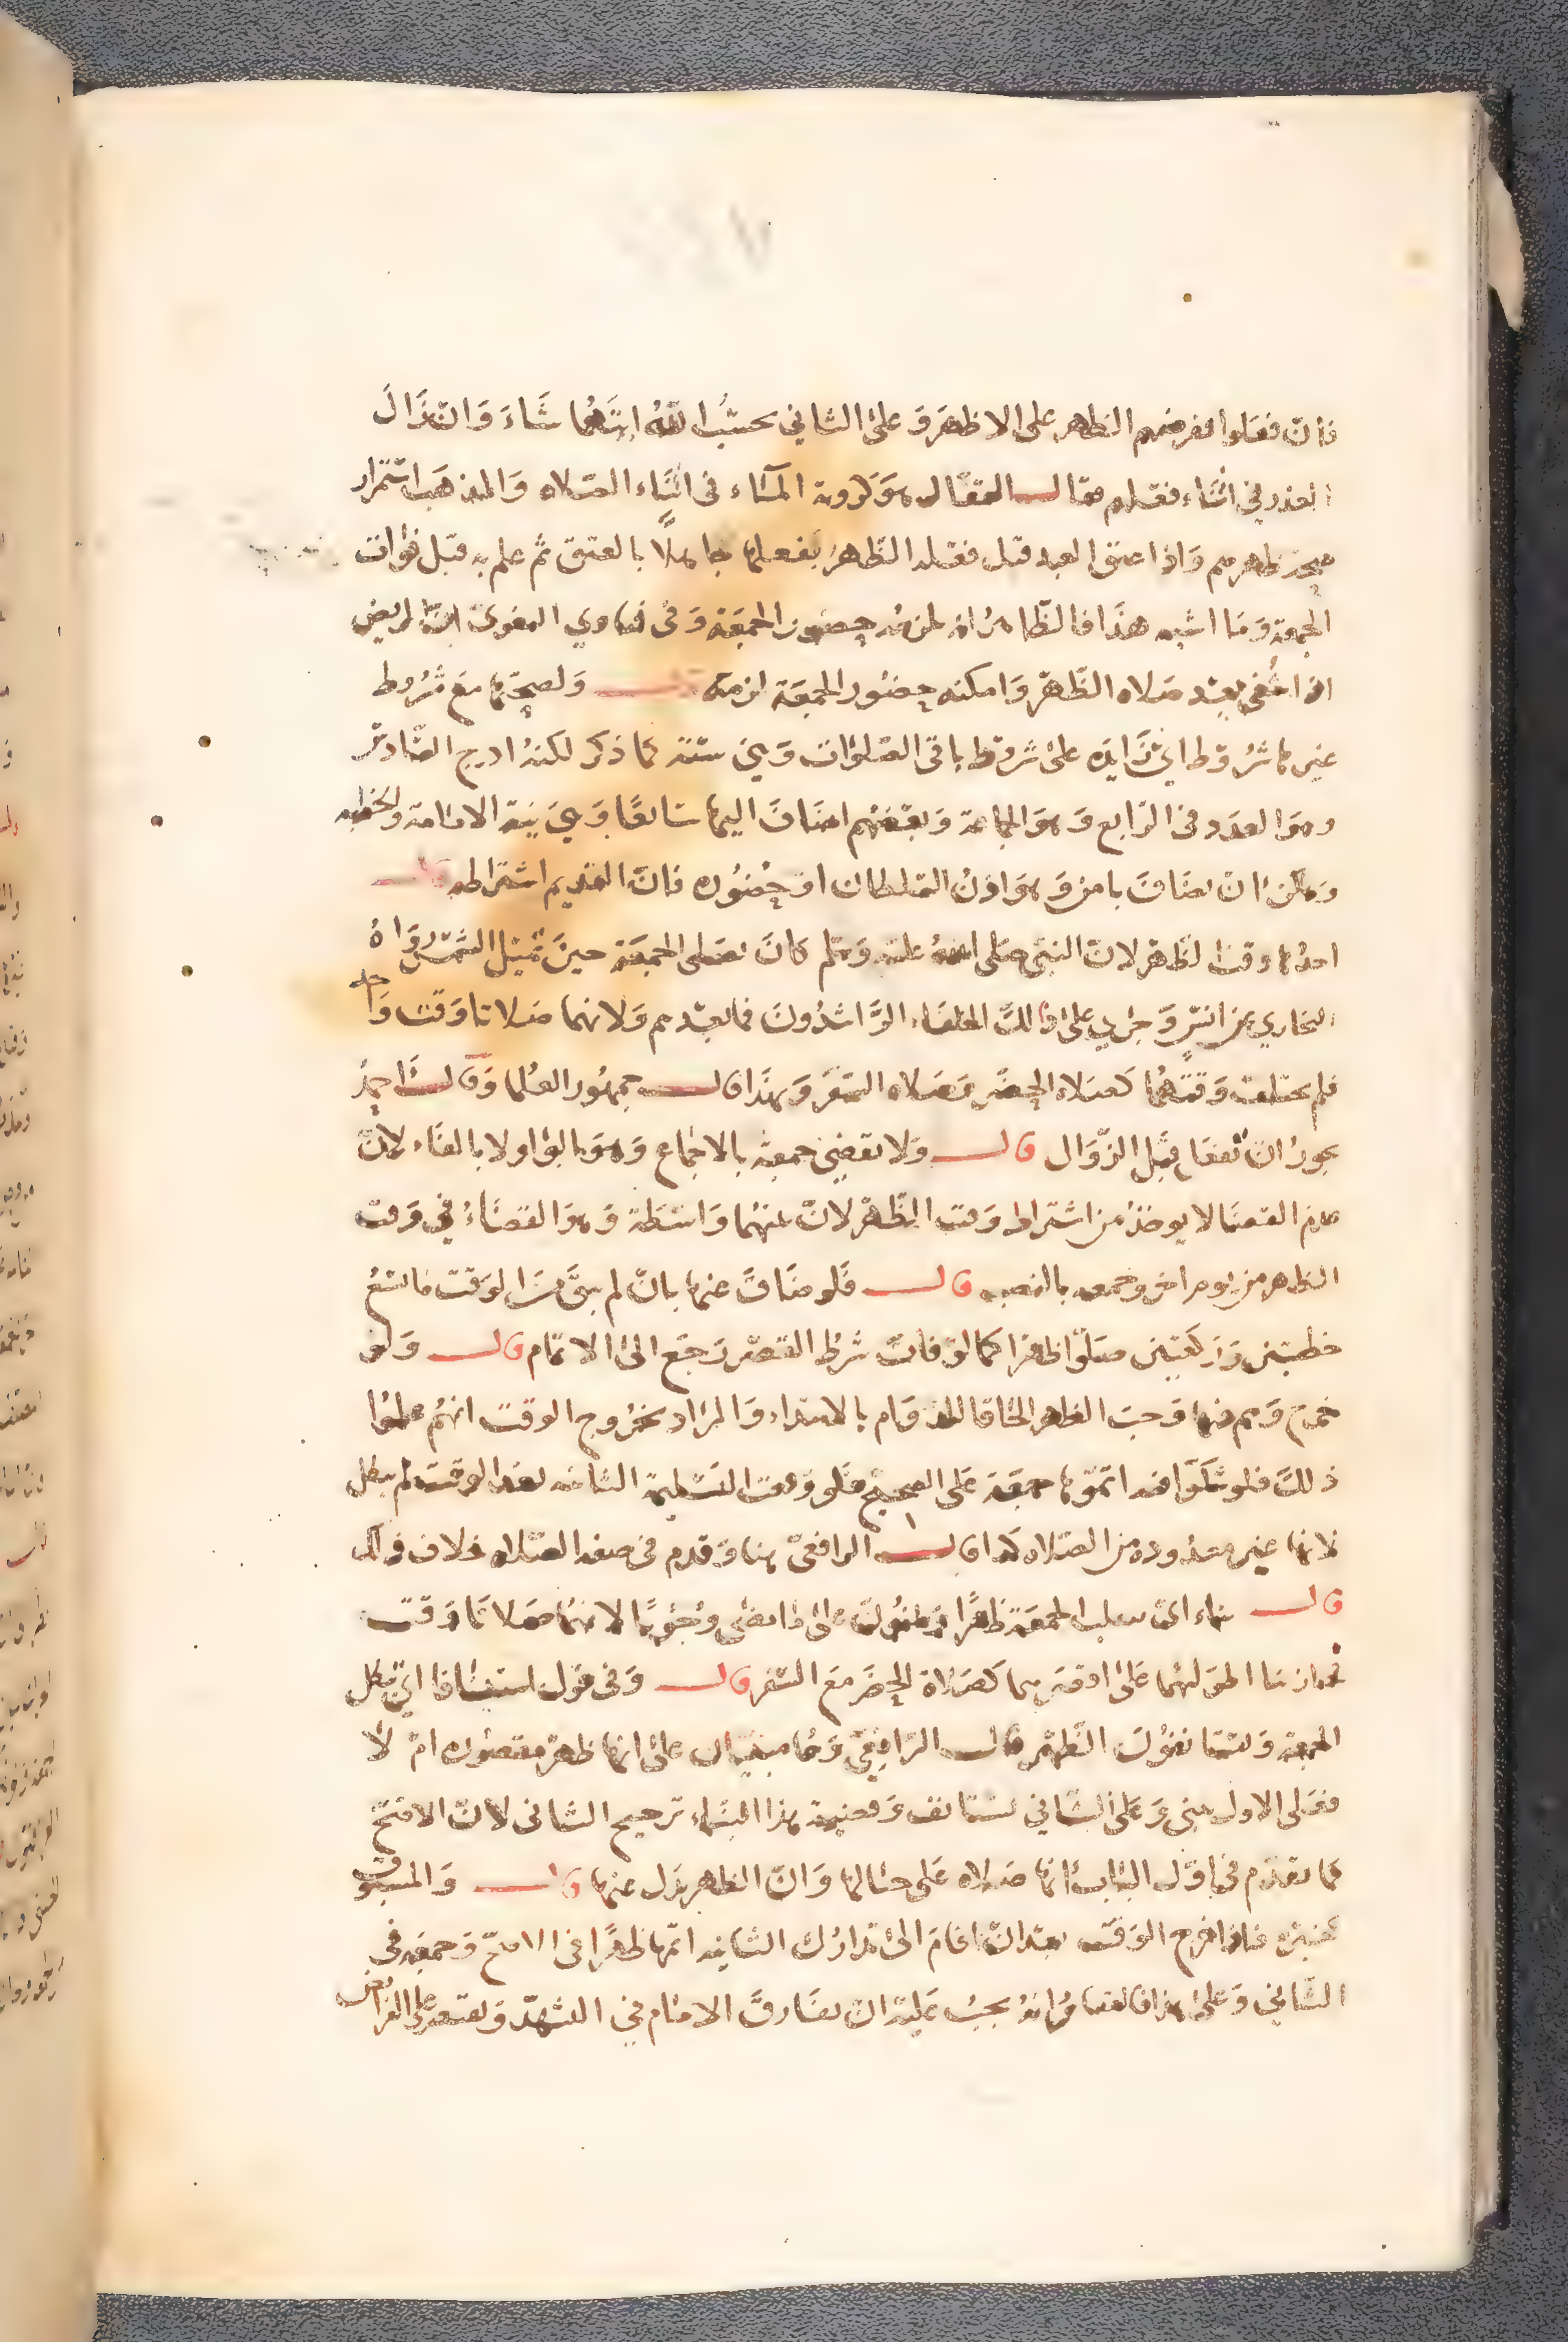 فان فعلوا ففرضهم الظهر على الاظهر وعلى الثاني يحتسب الله ايتهما شاء وان زال
العذر في اثناء فعلهم فقال القفال هو كروية الماء في اثناء الصلاة والمذهب استمرار
صحة ظهرهم واذا عتق العبد قبل فعله الظهر ففعلها جاهلا بالعتق ثم علم به قبل فوات
الجمعة وما اشبه هذا فالظاهر انه يلزمه حضور الجمعة وفي فتاوي البغوي ان المريض
اذا شفي بعد صلاه الظهر وامكنه حضور الجمعة لزمته قال ولصحتها مع شروط
غيرها شروط اي زايده على شروط باقي الصلوات وهي ستة كما ذكر لكنه ادرج السادس
وهو العدد في الرابع وهو الجماعة وبعضهم اضاف اليها سابعا وهي نية الامامة والخطبه
ويمكن ان يضاف ثامن وهو اذن السلطان او حضوره فان القديم اشتراطه قال
احدها وقت الظهر لان النبي صلى الله عليه وسلم كان يصلي الجمعة حين تميل الشمس رواه
البخاري عن انس وجري على ذلك الخلفاء الراشدون فما بعدهم ولانهما صلاتا وقت واحد
فلم يختلف وقتهما كصلاة الحضر وصلاه السفر وبهذا قال جمهور العلما وقال احمد
يجوز ان تفعل قبل الزوال قال ولا تقضى جمعة بالاجماع وهو بالواو لا بالفاء لان
عدم القضا لا يوخذ من اشتراط وقت الظهر لان بينهما واسطة وهو القضاء في وقت
الظهر من يوم اخر وجمعه بالنصب قال فلو ضاق عنها بان لم يبق من الوقت ما يسع
خطبتين وركعتين صلوا ظهرا كما لو فات شرط القصر رجع الى الاتمام قال ولو
خرج وهم فيها وجب الظهر الحاقا للدوام بالابتداء والمراد بخروج الوقت انهم علموا
ذلك فلو شكوا فيه اتموها جمعة على الصحيح فلو وقعت التسليمة الثانيه بعد الوقت لم تبطل
لانها غير معدوده من الصلاه كذا قال الرافعي هنا وقدم في صفة الصلاه خلاف ذلك
قال بناء اي يبني الجمعة ظهرا على ما مضى وجوبا لانهما صلاتا وقت
فجاز بنا اطولهما على اقصرهما كصلاة الحضر مع السفر قال وفي قول استينافا اي تبطل
الجمعة ويستانفون الظهر قال الرافعي وهما مبنيان على انها ظهر مقصوره ام لا
فعلى الاول يبني وعلى الثاني يستانف وقضية هذا البناء ترجيح الثاني لان الاصح
كما تقدم في اول الباب انها صلاه على حيالها وان الظهر بدل عنها قال والمسبوق
كغيره فاذا خرج الوقت بعد ان قام الى تدارك الثانيه اتمها ظهرا في الاصح وجمعة في
الثاني وعلى هذا فالقياس انه يجب عليه ان يفارق الامام في التشهد ويقتصر على الفرايض